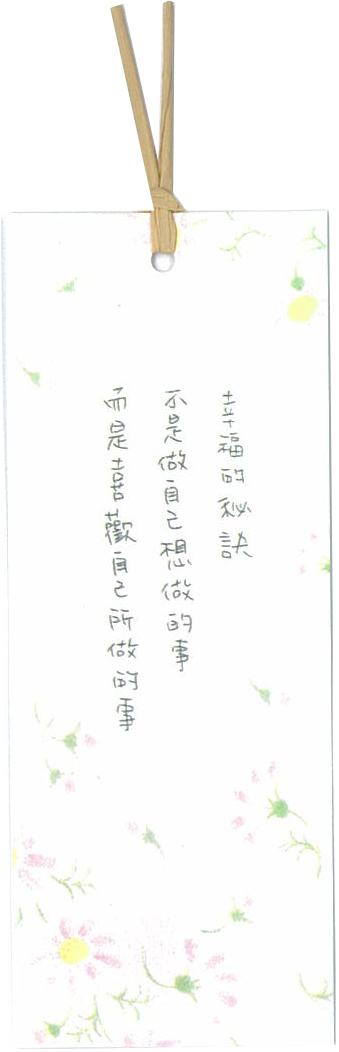 幸福的秘訣
不是做自己想做的事
而是喜歡自己所做的事